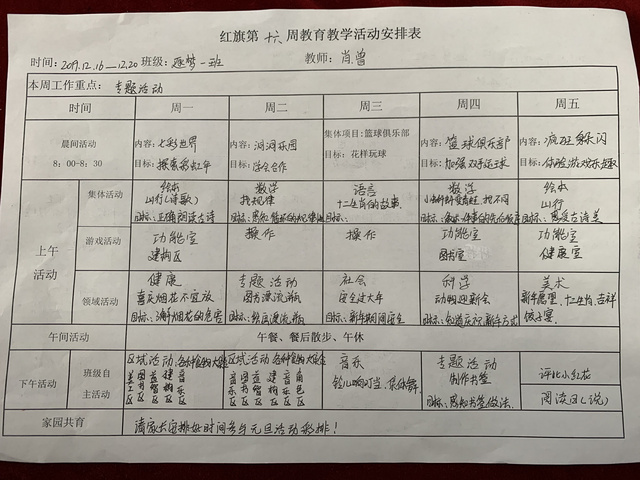 红旗第 十六 周教育教学活动安排表
时间:2019.12.16—12.20 班级:逐梦一班 教师:肖.曾
本周工作重点: 专题活动
时间 周一 周二 周三 周四 周五
晨间活动
8:00-8:30
内容:七彩世界
目标:探索彩虹伞
内容:
目标:学会合作
集体项目:篮球俱乐部
目标:花样玩球
内容:篮球俱乐部
目标:加强双手运球
内容:疯狂
目标:体验游戏乐趣
上午
活动
集体活动
绘本
山行(诗歌)
目标:正确朗读古诗
数学
找规律
语言
十二生肖的故事.
目标:
数学
绘本
山行
目标:感受古诗美
游戏活动
功能室
建构区
操作
操作
功能室
图书室
功能室
健康室
领域活动
健康
喜庆烟花不宜放
目标:了解烟花的危害
专题活动
图书漂流瓶
社会
安全过大年
目标:新年期间安全
科学
动物迎新会
目标:知道庆祝新年方式
美术
新年愿望.十二生肖.吉祥
午间活动 午餐、餐后散步、午休
下午活动
班级自
主活动
区域活动.
区域活动.
音乐
铃儿响叮当.集体舞
专题活动
制作书签
目标:感知书签做法.
评比小红花
阅读区(说)
家园共育
请家长安排好时间参与元旦活动彩排!